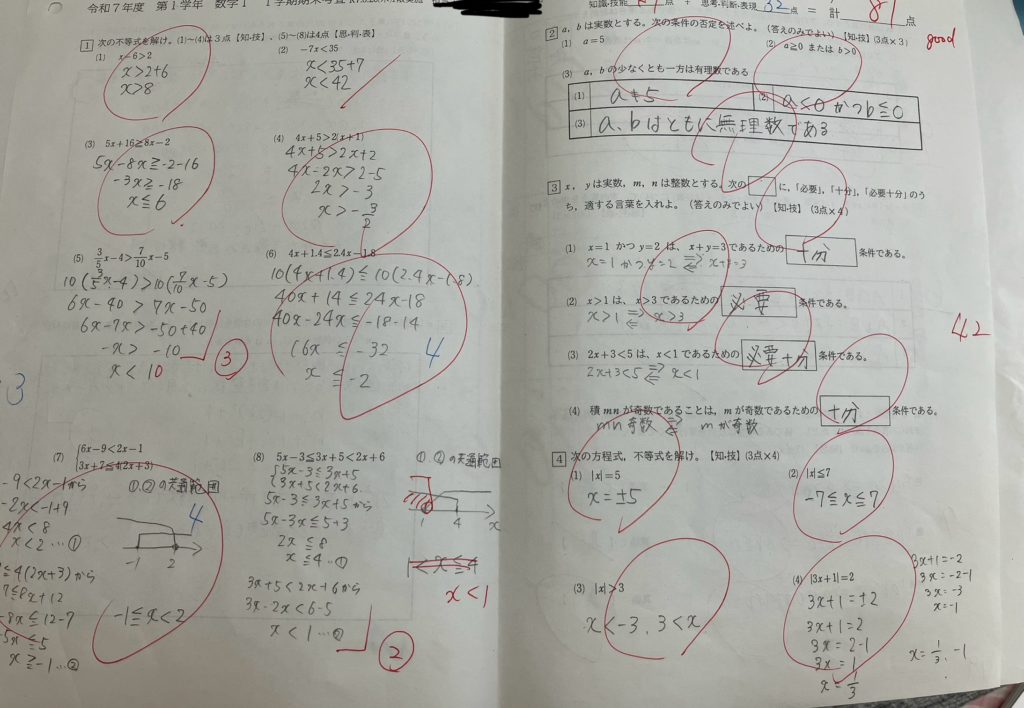 令和７年度 第１学年 数学１ １学期期末考査
知識・技能 点 + 思考・判断・表現 32 点 = 計 81 点
good
1 次の不等式を解け。(1)~(4)は３点【知・技】、(5)~(8)は4点【思・判・表】
(1) x−6>2
x>2+6
x>8
(2) −7x<35
x<35+7
x<42
(3) 5x+16≧8x−2
5x−8x≧−2−16
−3x≧−18
x≦6
(4) 4x+5>2(x+1)
4x+5>2x+2
4x−2x>2−5
2x>−3
x>−3/2
(5) 3/5x−4>7/10x−5
10(3/5x−4)>10(7/10x−5)
6x−40>7x−50
6x−7x>−50+40
−x>−10
x<10
③
(6) 4x+1.4≦2.4x−1.8
10(4x+1.4)≦10(2.4x−1.8)
40x+14≦24x−18
40x−24x≦−18−14
16x≦−32
x≦−2
4
3
(7) {6x−9<2x−1
3x+7≦4(2x+3)
−9<2x−1から
−2x<−1+9
4x<8
x<2…①
≦4(2x+3)から
7≦8x+12
−8x≦12−7
−5x≦5
x≧−1…②
①,②の共通範囲
4
−1 2
−1≦x<2
(8) 5x−3≦3x+5<2x+6
{5x−3≦3x+5
3x+5<2x+6
5x−3≦3x+5から
5x−3x≦5+3
2x≦8
x≦4…①
3x+5<2x+6から
3x−2x<6−5
x<1…②
①,②の共通範囲
1 4 x
1<x≦4
x<1
②
2 a，bは実数とする。次の条件の否定を述べよ。（答えのみでよい）【知・技】(3点×３)
(1) a=5
(2) a≧0 または b>0
(3) a，bの少なくとも一方は有理数である
(1) a≠5
(2) a≦0 かつ b≦0
(3) a、bはともに無理数である
3 x，yは実数，m，nは整数とする。次の □ に，「必要」，「十分」，「必要十分」のう
ち，適する言葉を入れよ。（答えのみでよい）【知・技】(3点×４)
(1) x=1 かつ y=2 は、x+y=3 であるための 十分 条件である。
x=1かつy=2 ⇄ x+y=3
(2) x>1 は、x>3 であるための 必要 条件である。
x>1 ⇄ x>3
(3) 2x+3<5 は、x<1 であるための 必要十分 条件である。
2x+3<5 ⇄ x<1
(4) 積 mn が奇数であることは、m が奇数であるための 十分 条件である。
mn 奇数 ⇄ m が奇数
42
4 次の方程式，不等式を解け。【知・技】(3点×4)
(1) |x|=5
x=±5
(2) |x|≦7
−7≦x≦7
(3) |x|>3
x<−3、3<x
(4) |3x+1|=2
3x+1=±2
3x+1=2
3x=2−1
3x=1
x=1/3
3x+1=−2
3x=−2−1
3x=−3
x=−1
x=1/3、−1